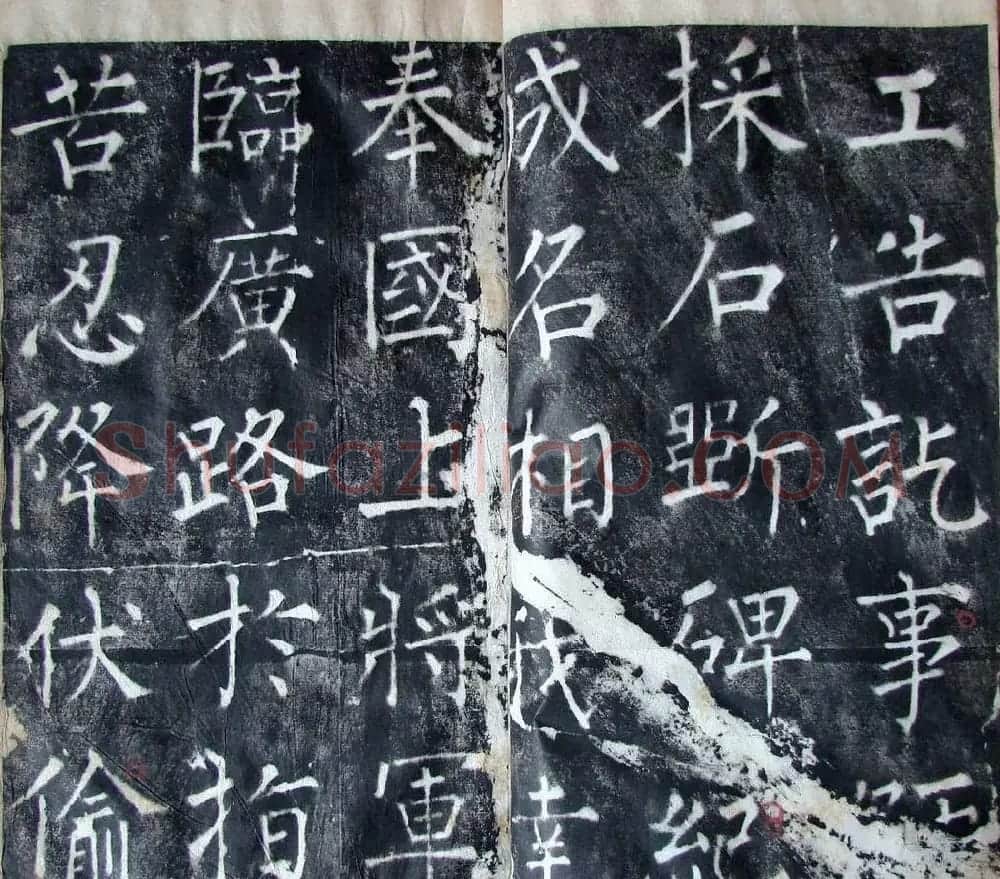 工告訖事
採石斲碑紀
成名相我幸
奉國上將軍
臨廣路於指
苦忍降伏偷
Shufaziliao.COM